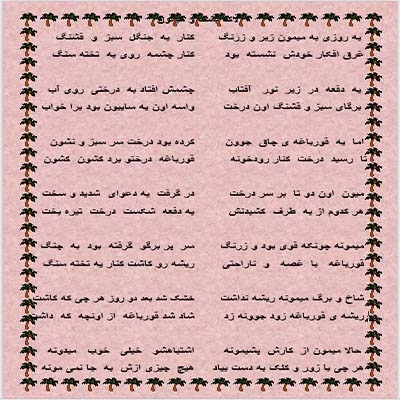 یه روزی یه میمون زبر و زرنگ کنار یه جنگل سبز و قشنگ
غرق افکار خودش نشسته بود کنار چشمه روی یه تخته سنگ
یه دفعه در زیر نور آفتاب چشمش افتاد به درختی روی آب
برگای سبز و قشنگ اون درخت واسه اون یه سایبون بود برا خواب
اما یه قورباغه ی چاق جوون کرده بود درخت سر سبز و نشون
تا رسید درخت کنار رودخونه قورباغه درختو برد کشون کشون
میون اون دو تا بر سر درخت در گرفت یه دعوای شدید و سخت
هر کدوم از یه طرف کشیدنش یه دفعه شکست درخت تیره بخت
میمونه چونکه قوی بود و زرنگ سر پر برگو گرفته بود به چنگ
قورباغه با غصه و ناراحتی ریشه رو کاشت کنار یه تخته سنگ
شاخ و برگ میمونه ریشه نداشت خشک شد بعد دو روز هر چی که کاشت
ریشه ی قورباغه زود جوونه زد شاد شد قورباغه از اونچه که داشت
حالا میمون از کارش پشیمونه اشتباهشو خیلی خوب میدونه
هر چی با زور و کلک به دست بیاد هیچ چیزی ازش به جا نمی مونه